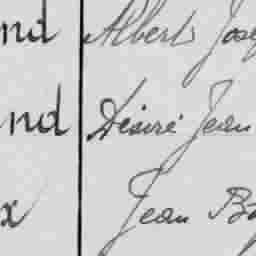 nd Albert Jose
nd Désiré Jean
x Jean Ba